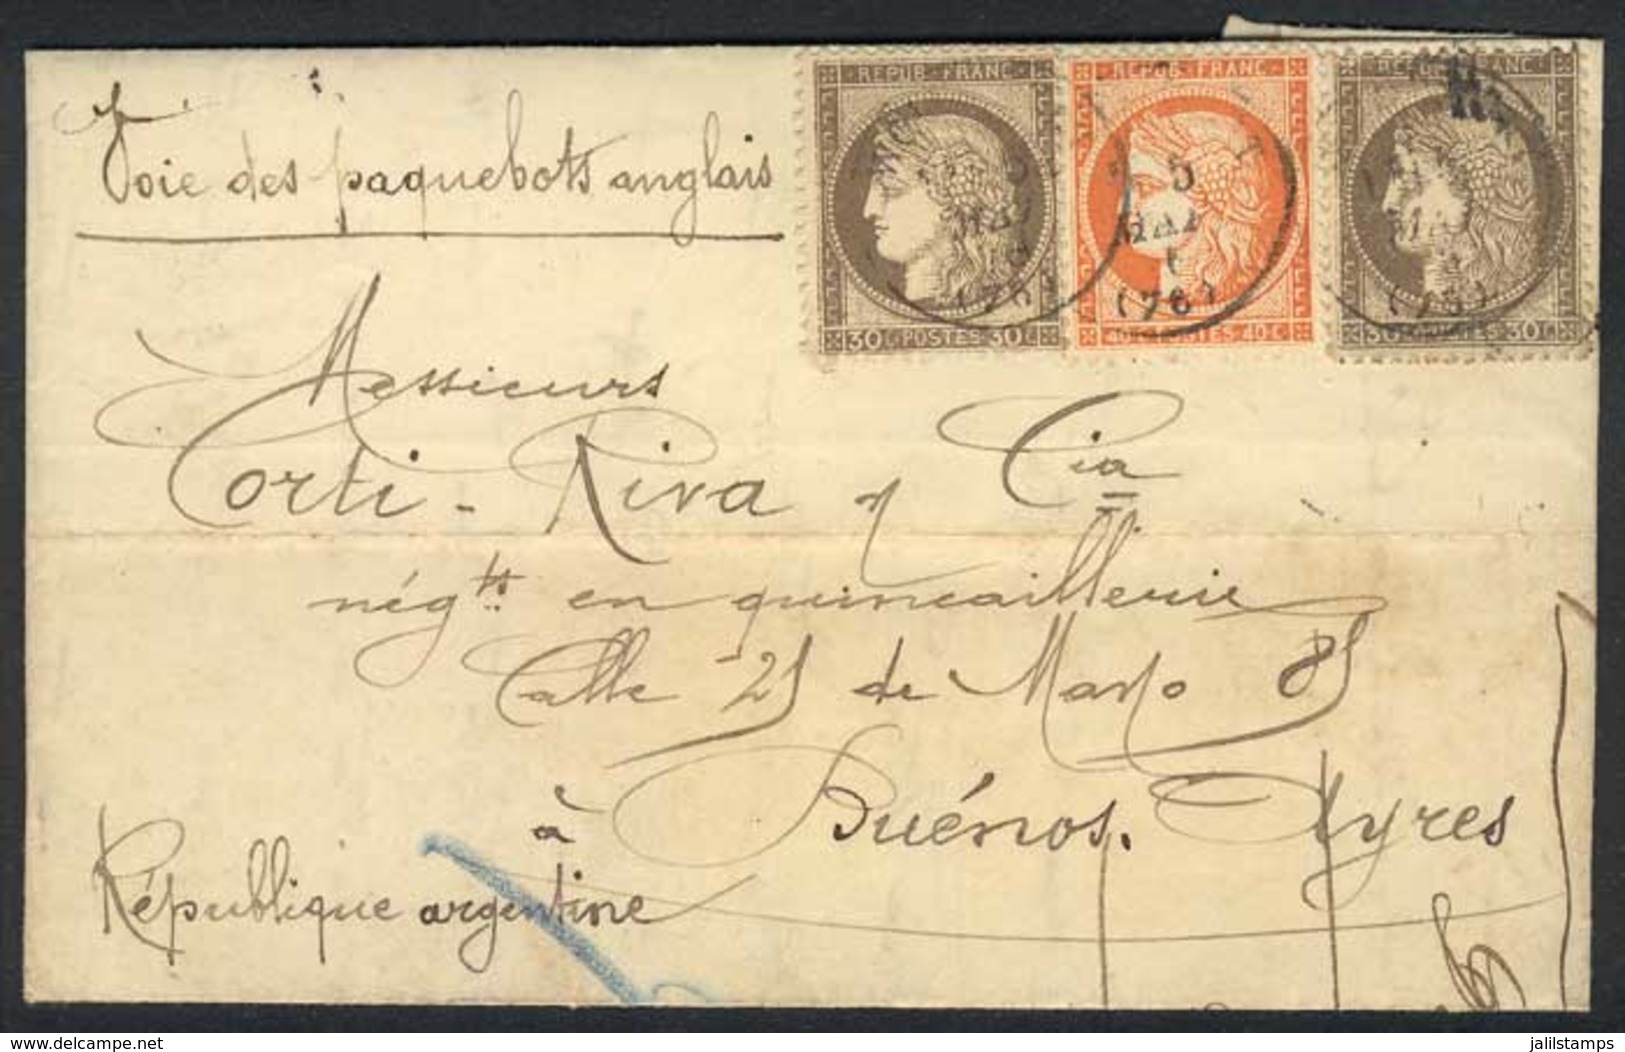 REPUB · FRANC
REPUB · FRANC
REPUB · FRANC
Voie des paquebots anglais
5
MAI
(76)
(76)
(76)
30 C · POSTES · 30 C
40 C · POSTES · 40 C
30 C · POSTES · 30 C
Messieurs
Corti - Riva y Cia
nég.ts en quincaillerie
Calle 25 de Mayo 85
à Buénos. Ayres
République argentine
www.delcampe.net
jalilstamps